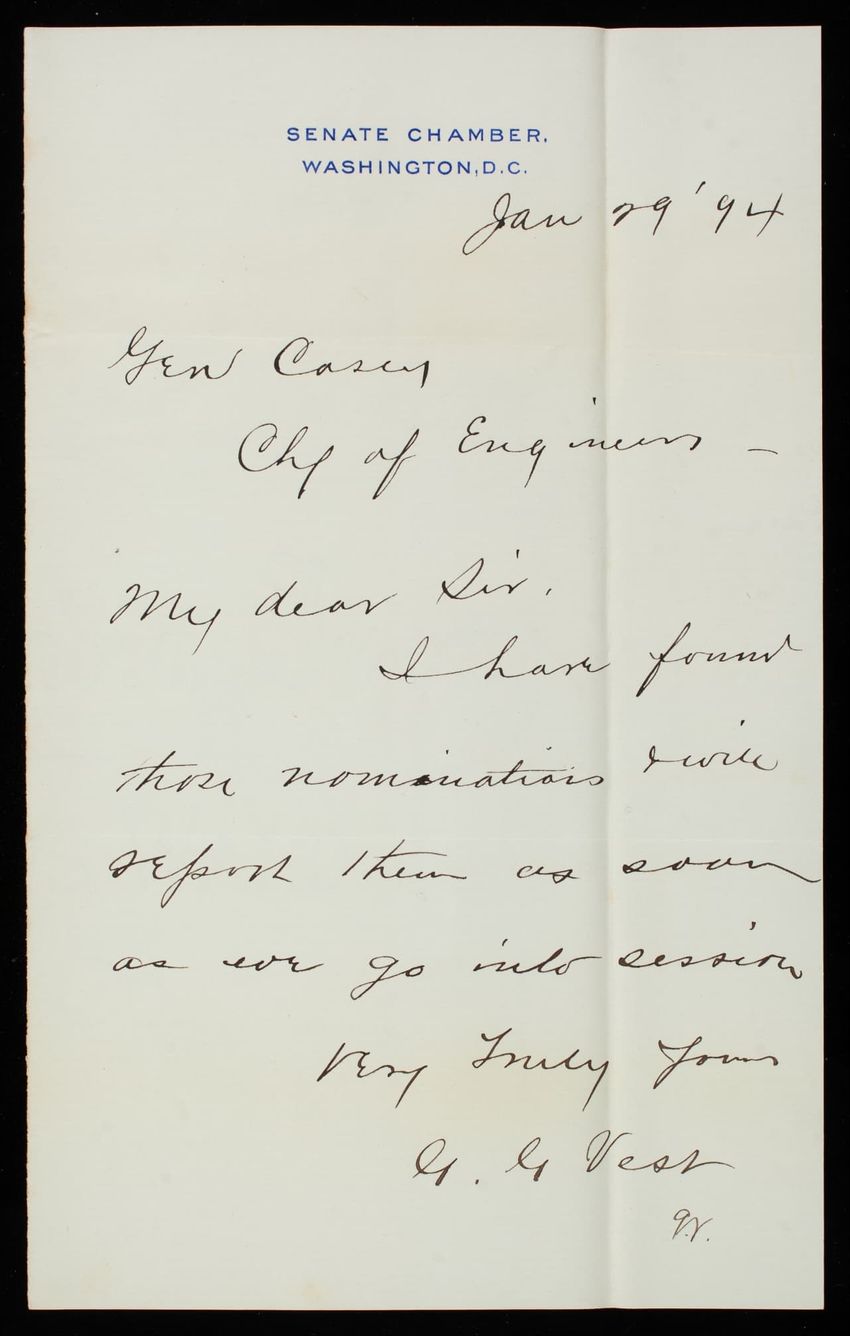 SENATE CHAMBER,
WASHINGTON, D.C.
Jan 29 '94
Gen Casey
Chf of Engineers —
My dear Sir.
I have found
those nominations & will
report them as soon
as we go into session
Very Truly Yours
G. G Vest